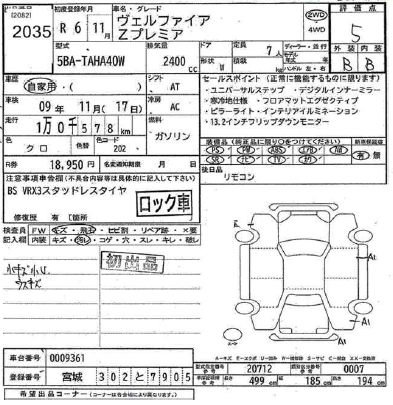 [2082]
2035
初度登録年月
R 6 11月
車名・グレード
ヴェルファイア
Zプレミア
2WD
4WD
評価点
5
型式
5BA-TAHA40W
排気量
2400
cc
ドア
7人
ディーラー 並行
ハンドル 左 右
外装 内装
B B
車歴
自家用・( )
シフト
AT
車検
09年 11月(17日)
冷房
AC
走行
1万0千578km
燃料
ガソリン
色
クロ
色替
色コード
202
R券
18,950円
名変通知期限 月 日
セールスポイント(正常に機能するものに限ります)
・ユニバーサルステップ ・デジタルインナーミラー
・寒冷地仕様 ・フロアマットエグゼクティブ
・ピラーライト・インテリアイルミネーション
・13.2インチフリップダウンモニター
装備品(純正品に限り○をつけてください)
PS PW ABS
SR TV
有・無
後日品
リモコン
注意事項車検査申告欄(不具合内容等は具体的に記入して下さい)
BS VRX3スタッドレスタイヤ
修復歴 有 [箇所
ロック車
検査員
記入欄
FW キズ・飛石 ヒビ割・リペア跡・×要
内装 キズ・汚レ・コゲ・穴・スレ・キレ・破レ
初出品
ハキズ小、ウスキズ
A1
A1
A1
車台番号 0009361
登録番号 宮城 302と7905
希望出品コーナー
型式指定番号 20712
類別区分番号 0007
長さ 499cm
幅 185cm
高さ 194cm